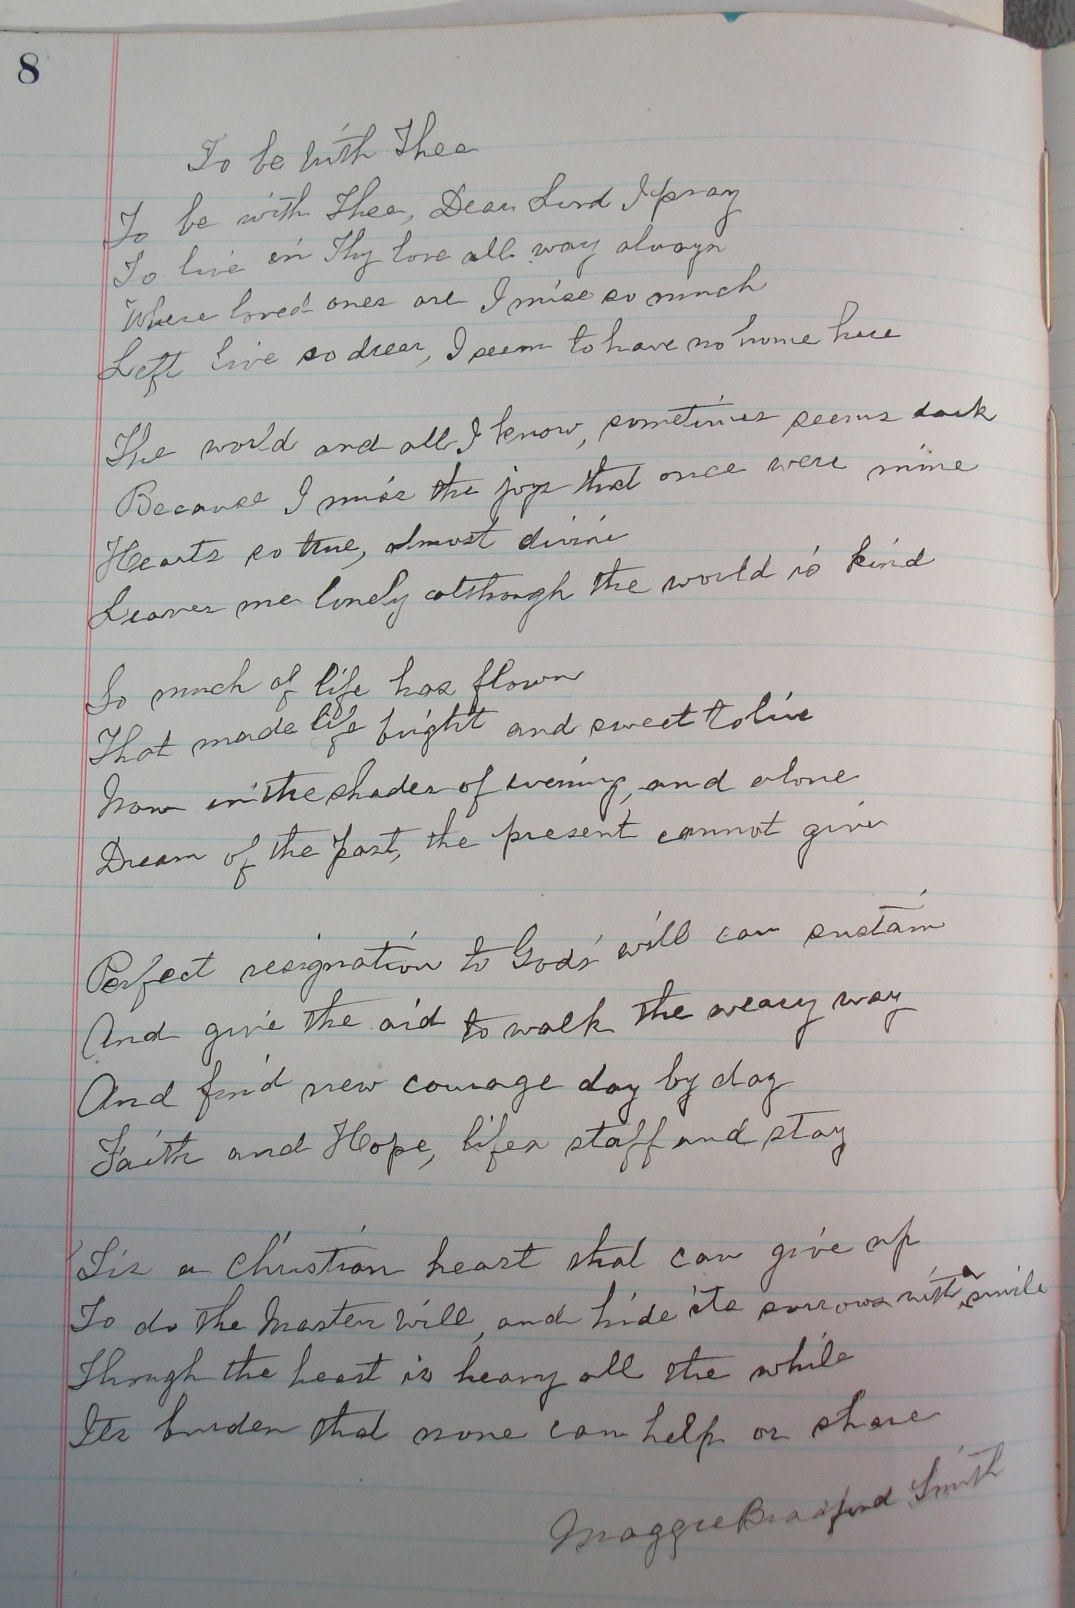 8
To be With Thee
To be with Thee, Dear Lord I pray
To live in Thy love all way always
Where loved ones are I miss so much
Left live so drear, I seem to have no home here
The world and all I know, sometimes seems dark
Because I miss the joys that once were mine
Hearts so true, almost divine
Leaves me lonely although the world is kind
So much of life has flown
That made life bright and sweet to live
Now in the shades of evening, and alone
Dream of the Past, the present cannot give
Perfect resignation to Gods' will can sustain
And give the aid to walk the weary way
And find new courage day by day
Faith and Hope, lifes staff and stay
'Tis a Christian heart that can give up
To do the Master Will, and hide its sorrows with a smile
Though the heart is heavy all the while
Its burden that none can help or share
Maggie Bradford Smith